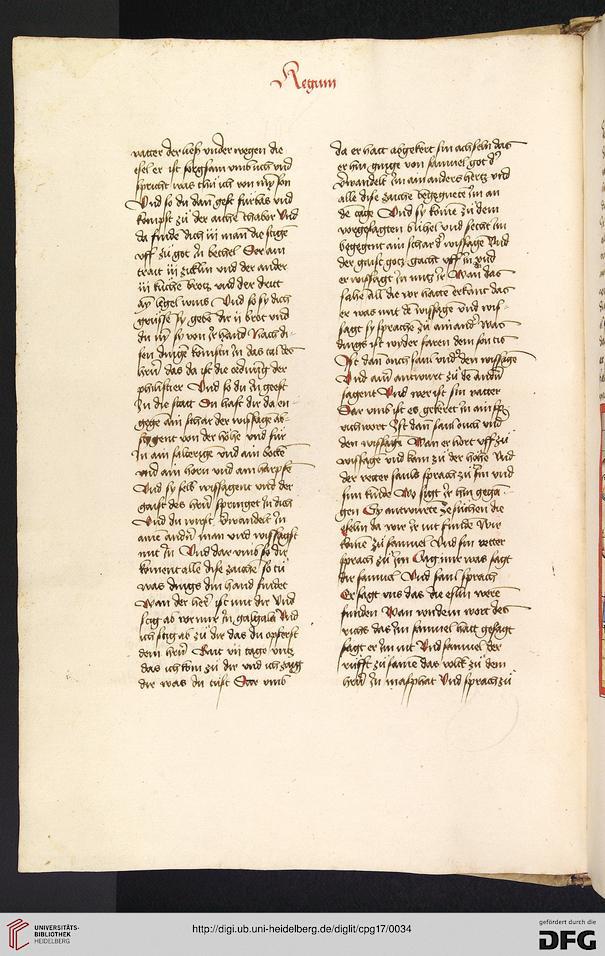 Regum
vatter der ließ under wegen die
esel er ist sorgsam umb uch und
spricht was thu ich von mÿm son
Und so du dan gest fürbas und
kompst zu der aiche thabor Und
da finde dich iii man die stige
uff zu got zu bethel Der ain
trait iii zicklin und der ander
iii kuche brotz und der drit
ain legel wins Und so sy dich
grüsse sy gebe dir ii brot und
du nÿ sy von ir hand Nach di-
sen dinge komstu zu das tal des
herrn das da ist die ordnung der
philister Und so du in geest
In die statt Du hast dir da en-
gege ain schar der wissage ab-
stÿgent von der höhe und für
In ain salterige und ain
und ain horn und ain harpfe
Und sy selb wissagent und der
gaist des herrn springet in dich
Und du wirst verwandelt in
ainē andern man und wissagst
mit in Und dar umb so dir
koment alle dise zaiche so tu
was dings din hand findet
Wan der her ist mit dir Und
stig ab vor mir in galgala Und
ich stig ab zu dir das du opferst
dem herrn Bait vii tage untz
das ich kom zu dir und ich zaig
dir was du tust Dar umb
da er hatt abgekert sin achseln das
er hin ginge von samuel got der
verwandelt im ain anders hertz und
alle dise zaiche begegnete im an
de tage Und sy kome zu dem
vorgesagten bühel und secht im
begegent ain schar der wissage Und
der gaist gotz gacht uff in und
er wissagt in mitz ir Wan das
sahe all die vor hatte erkant das
er was mit de wissage und wis-
sagt sy sprache zu ainander Was
dings ist wider faren dem son cis
Ist dan ouch saul under den wissage
Und ain antwurt zu de andern
sagent Und wer ist sin vatter
Dar umb ist es gekeret in ain sp
richwort Ist dan saul ouch under
den wissage Wan er hört uff zu
wissage und kam zu der höhe Und
der vetter sauls sprach zu im und
sim kinde Wo sigt ir hin gega-
gen Sy antwurte ze suchen die
eselin da wir ir nit finde Wir
kome zu samuel Und sin vetter
sprach zu im Sag mir was sagt
dir samuel Und saul sprach
Er sagt uns das die eslin were
funden Wan von dem wort des
richs das im samuel hatt gesagt
sagt er im nit Und samuel der
rüfft zu same das volck zu dem
herrn in masphat Und sprach zu
UNIVERSITÄTS-
BIBLIOTHEK
HEIDELBERG
http://digi.ub.uni-heidelberg.de/diglit/cpg17/0034
gefördert durch die
DFG